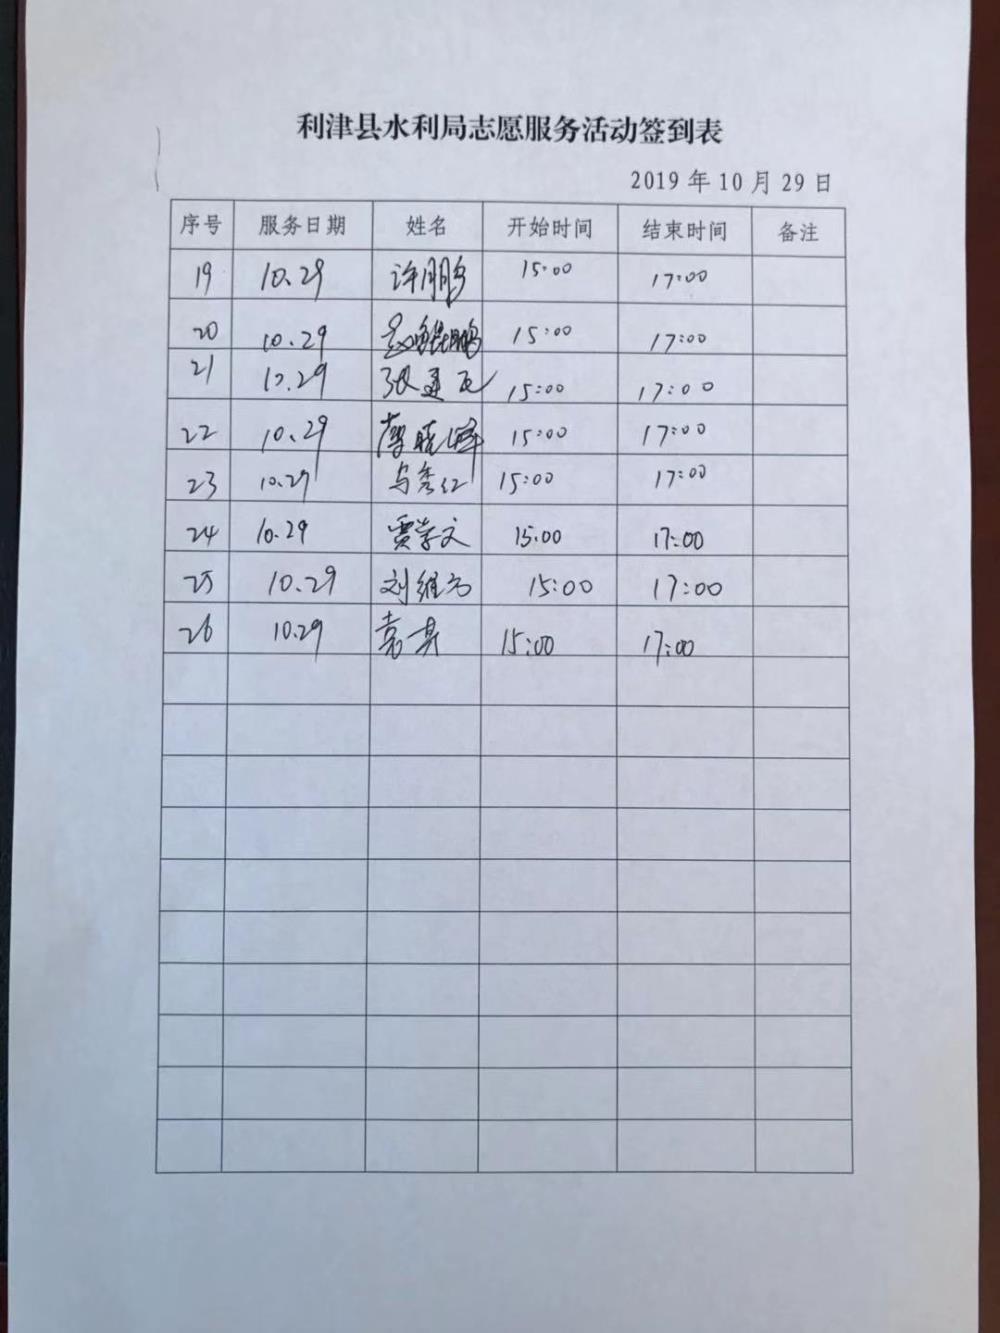 利津县水利局志愿服务活动签到表
2019年10月29日
序号 服务日期 姓名 开始时间 结束时间 备注
19 10.29 许鹏 15:00 17:00
20 10.29 赵鲲鹏 15:00 17:00
21 10.29 张建 15:00 17:00
22 10.29 晓峰 15:00 17:00
23 10.29 秀红 15:00 17:00
24 10.29 贾学文 15:00 17:00
25 10.29 刘维 15:00 17:00
26 10.29 袁 15:00 17:00